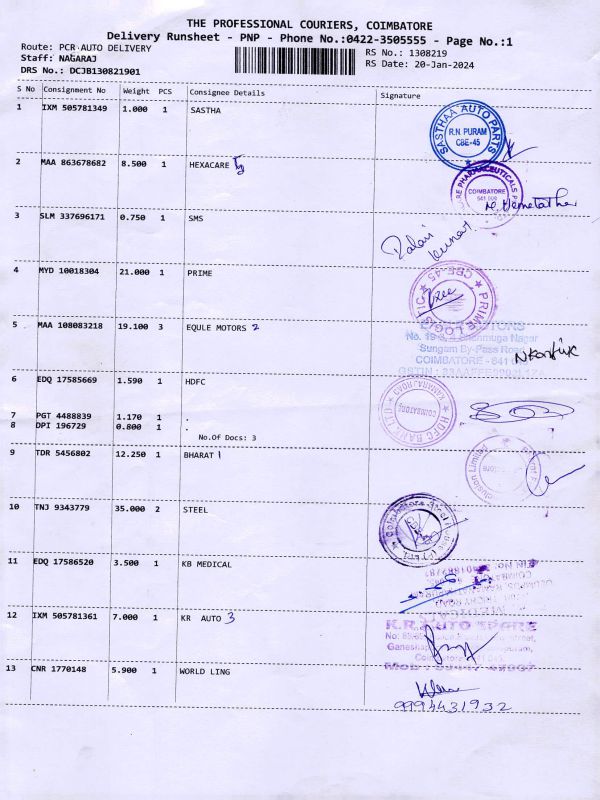 THE PROFESSIONAL COURIERS, COIMBATORE
Delivery Runsheet - PNP - Phone No.:0422-3505555 - Page No.:1
Route: PCR AUTO DELIVERY
RS No.: 1308219
Staff: NAGARAJ
RS Date: 20-Jan-2024
DRS No.: DCJB130821901
S No Consignment No Weight PCS Consignee Details Signature
1 IXM 505781349 1.000 1 SASTHA
SASTHAA AUTO PARTS
R.N. PURAM
CBE-45
2 MAA 863678682 8.500 1 HEXACARE
PHARMACEUTICALS
COIMBATORE
3 SLM 337696171 0.750 1 SMS
4 MYD 10018304 21.000 1 PRIME
PRIME LOGISTIC
CBE-45
5 MAA 108083218 19.100 3 EQULE MOTORS 2
Sungam By-Pass Road
COIMBATORE - 641
6 EDQ 17585669 1.590 1 HDFC
HDFC BANK LTD
COIMBATORE
7 PGT 4488839 1.170 1 .
8 DPI 196729 0.800 1 .
No.Of Docs: 3
9 TDR 5456802 12.250 1 BHARAT 1
10 TNJ 9343779 35.000 2 STEEL
11 EDQ 17586520 3.500 1 KB MEDICAL
12 IXM 505781361 7.000 1 KR AUTO 3
K.R. AUTO SPORE
13 CNR 1770148 5.900 1 WORLD LING
9994431932